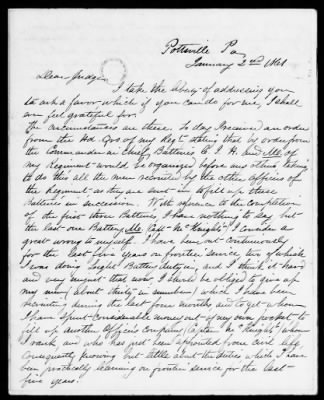 Pottsville Pa
January 2nd 1861
Dear Judge
I take the liberty of addressing you
to ask a favor which if you can do for me, I shall
ever feel grateful for.
The circumstances are these. To day I received an order
from the Hd. Qrs of my Regt stating that by order from
the Commander in Chief, Batteries C. I. H. and M. of
my Regiment would be organized before any others taking
to do this all the men recruited by the other officers of
the Regiment as they are sent in to fill up these
Batteries in succession. With reference to the completion
of the first three Batteries I have nothing to say but
the last one Battery M. Capt Mc Knight, I consider a
great wrong to myself. I have been out continuously
for the last five years on frontier service, two of which
I was doing Light Battery duty in, and I think it hard
and very unjust that now I should be obliged to give up
my men, (about thirty in number) which I have been
recruiting during the last four months and to get whom
I have spent considerable money out of my own pocket to
fill up another Officers company (Captain Mc Knights) whom
I rank and who has just been appointed from civil life
Consequently knowing but little about the duties which I have
been practically learning on frontier service for the last
five years.